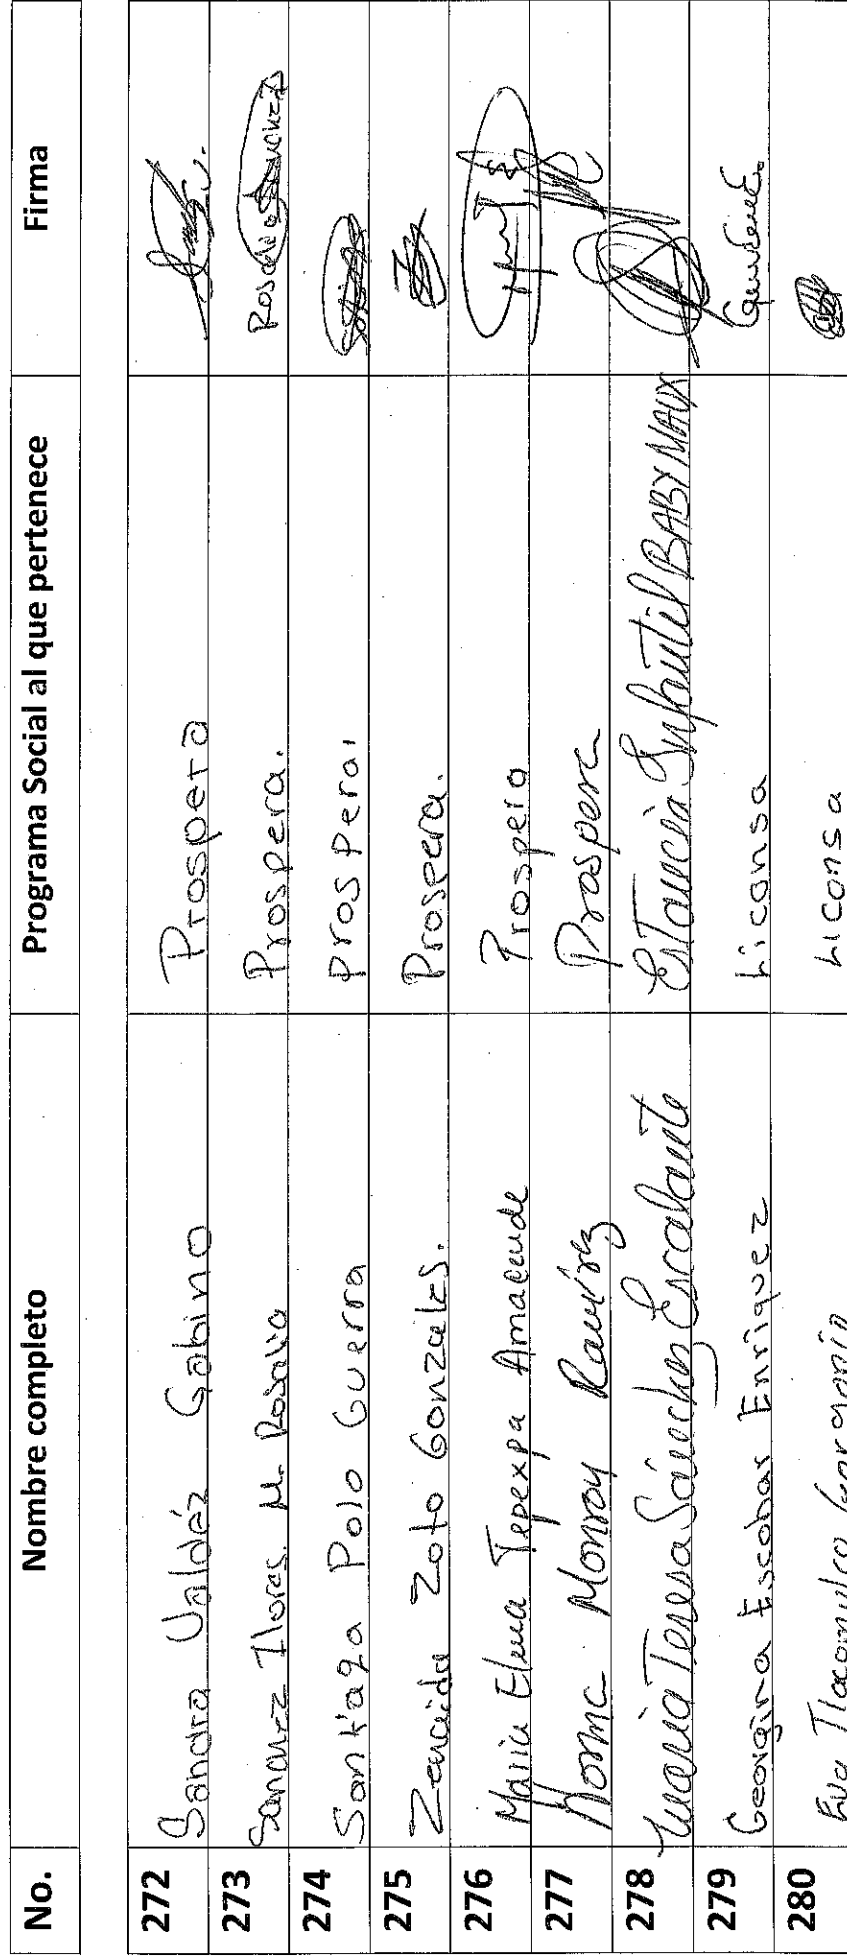 No. Nombre completo Programa Social al que pertenece Firma
272 Sandra Valdéz Gabino Prospera
273 Sanchez Flores M. Rosalia Prospera.
274 Santiaga Polo Guerra Prospera.
275 Zenaida Zoto Gonzales. Prospera.
276 Maria Elena Tepexpa Amacende Prospera
277 Norma Monroy Ramírez Prospera
278 Maria Teresa Sánchez Escalante Estancia Infantil BABY MAUX
279 Georgina Escobar Enriquez Liconsa
280 Eva Tlacomulco Liconsa